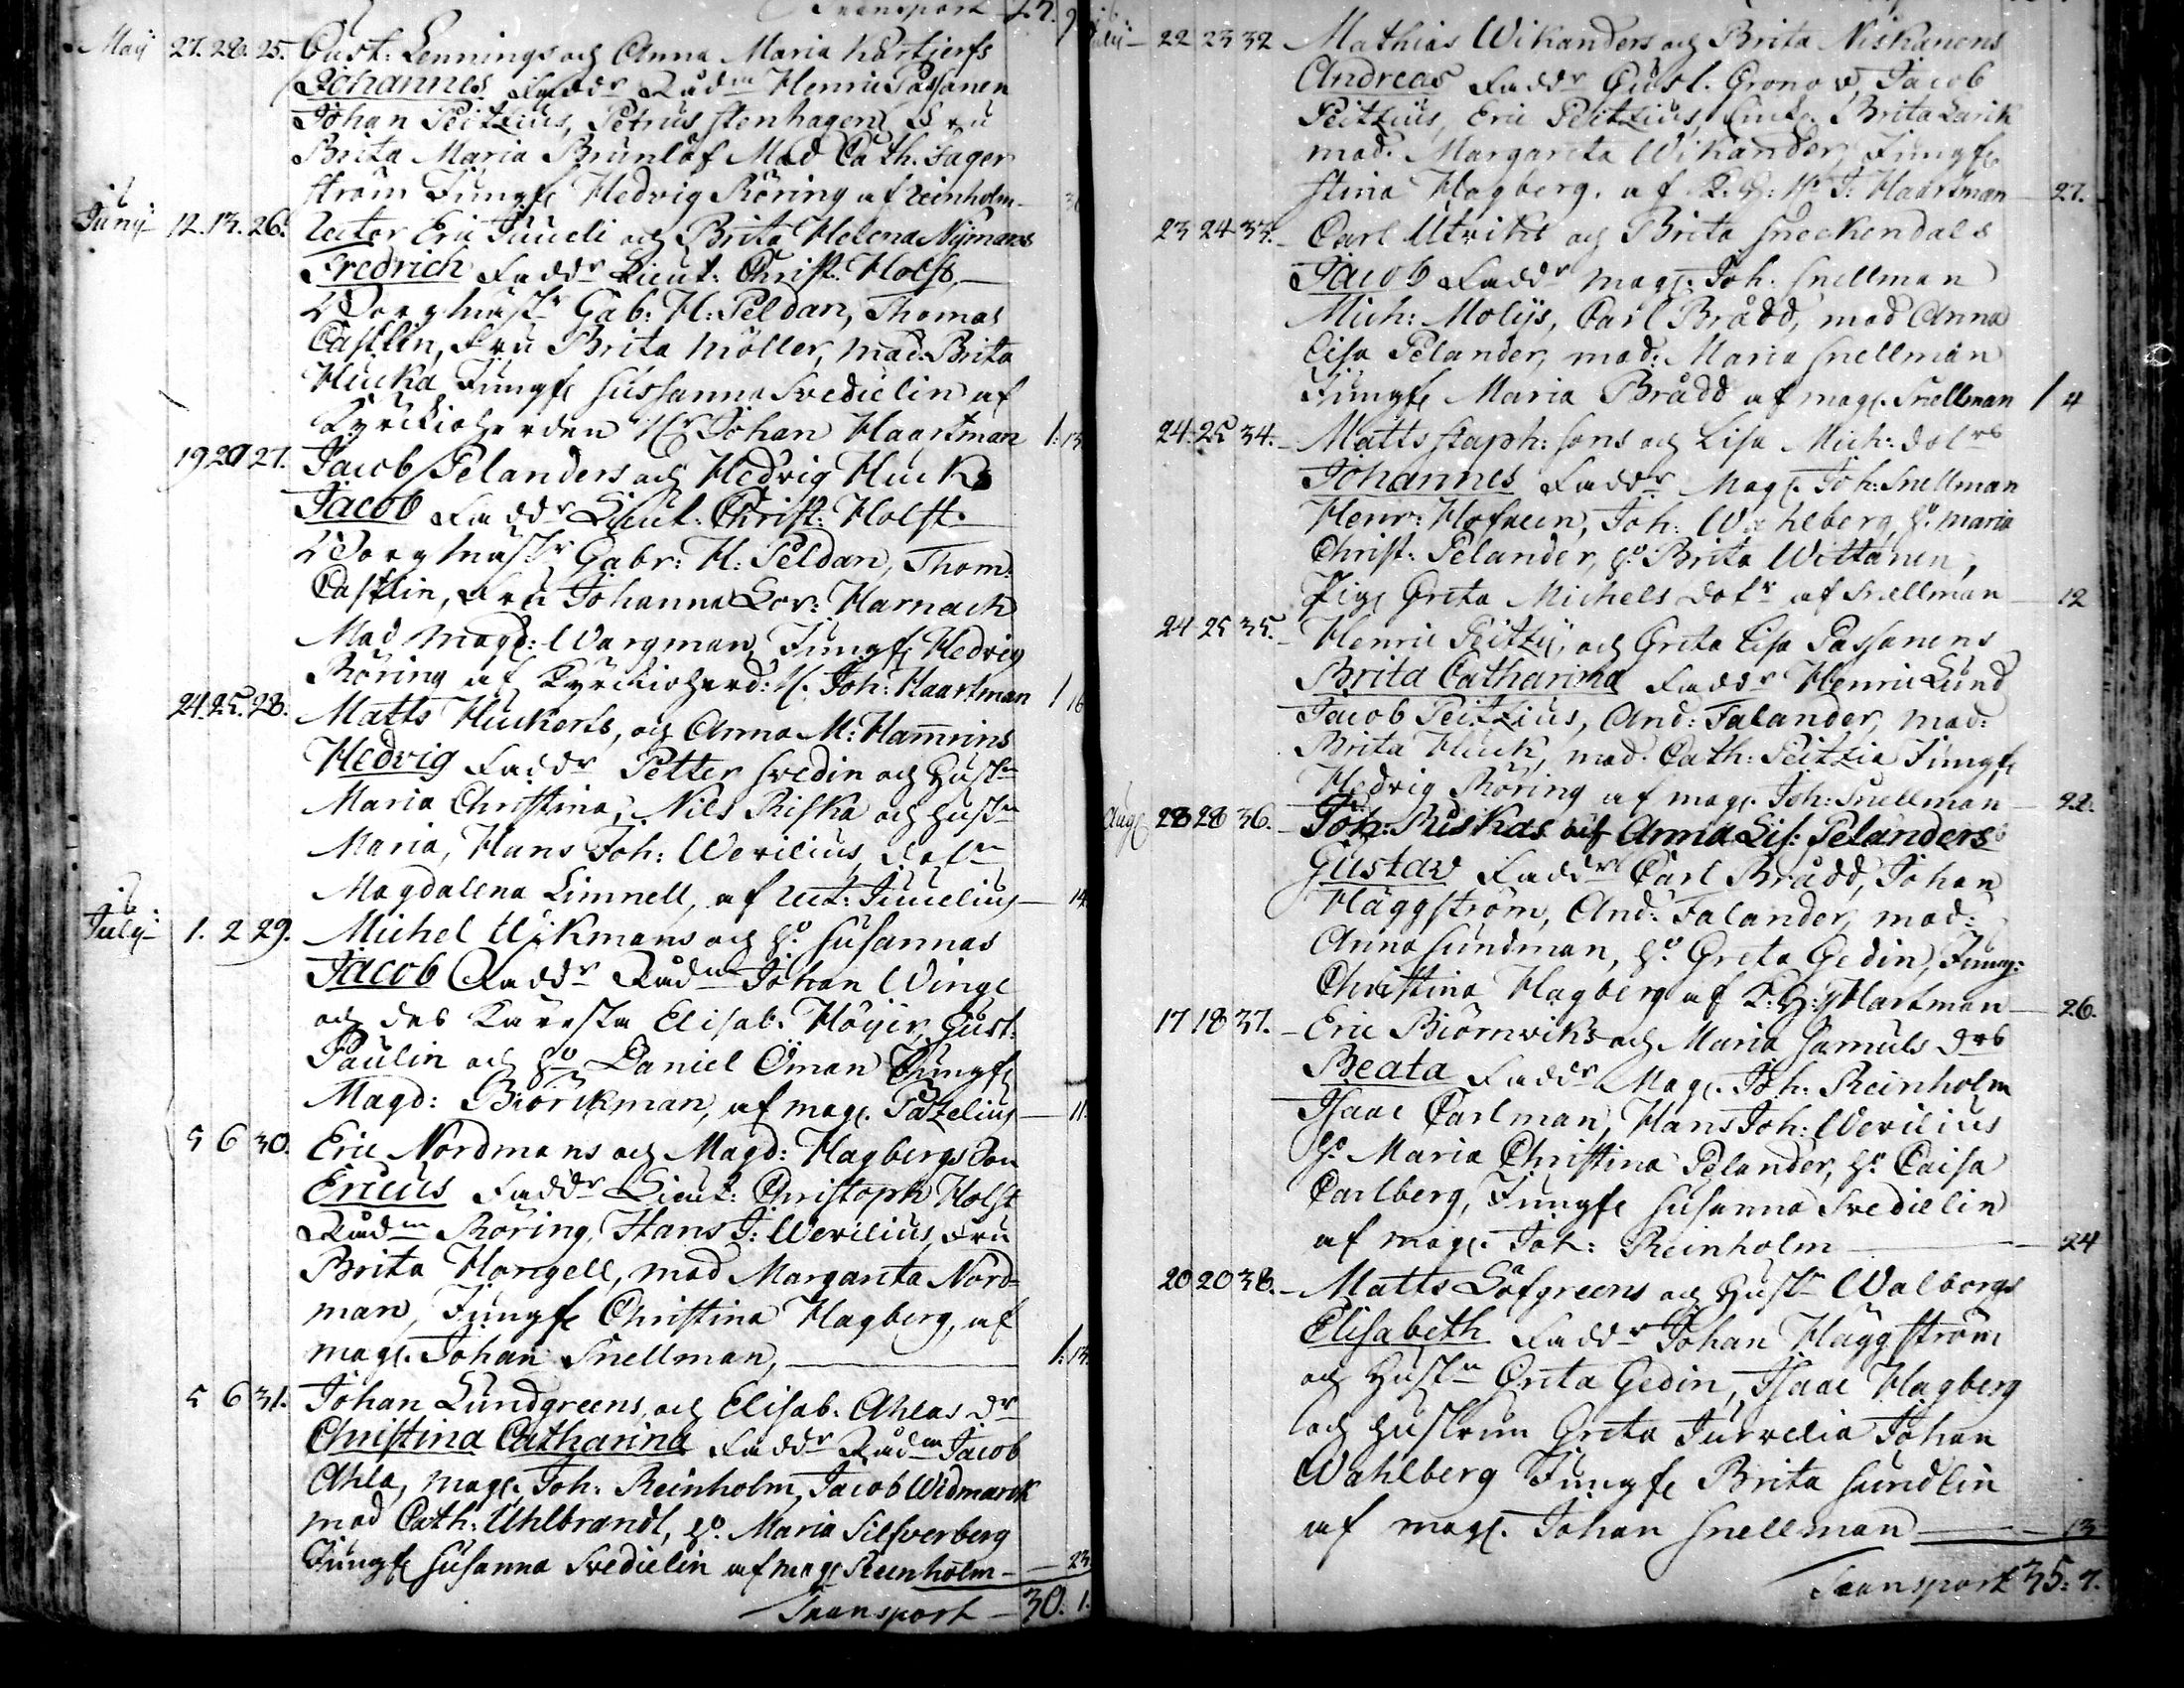 Transport 27. 9
May 27. 28. 25. Gust: Lennings och Anna Maria
Johannes Fadd^r Råd^m Henric Passonen
Johan Peitzius, Petrus Stenhagen Fru
Brita Maria Brunlöf Mad Cath. Fager
ström Jungf. Hedvig Röring af Reinholm
Juny 12. 13. 26. Rector Eric Juueli och Brita Helena Nymans
Fredrich Fadd^r Lieut: Christ: Holst,
Borgmäst^r Gab: H: Peldan, Thomas
Castlin, Fru Brita Möller, Mad: Brita
Hucka Jungf. Sussanna Svedielin af
Kyrckioherden H^r Johan Haartman 1: 13
19 20 27. Jacob Pelanders och Hedvig Hucks
Jacob Fadd^r Lieut: Christ: Holst.
Borgmäst^r Gabr: H: Peldan, Thom:
Castlin, Fru Johanna Lov: Harnack
Mad Magd: Wargman Jungf. Hedvig
Röring af Kyrckioherd: H. Joh: Haartman 1 16
24. 25. 28. Matts Huckerts, och Anna M: Hamrins
Hedvig Fadd^r Petter Svedin och Hust^n
Maria Christina, Nils Riska och Hust^n
Maria, Hans Joh: Werilius
Magdalena Limnell, af Rect: Juuelius 14
July 1. 2 29. Michel Wikmans och H^o Susannas
Jacob Fadd^r Råd^m Johan Winge
och des Käresta Elisab. Höijer, Gust:
Paulin och H^o Daniel Öman Jungf.
Magd: Biörckman, af mag. Pazelius 11.
5 6 30. Eric Nordmans och Magd: Hagbergs Son
Ericus Fadd^r Lieut: Christoph Holst
Råd^m Röring, Hans J: Werilius, Fru
Brita Horgell, mad Margareta Nord=
man, Jungf. Christina Hagberg, af
mag. Johan Snellman, 1: 13.
5 6 31. Johan Lundgreens, och Elisab. Ahlas D^r
Christina Catharina Fadd^r Råd^m Jacob
Ahla, mag. Joh: Reinholm, Jacob Widmarck
mad Cath: Uhlbrandt, H^o. Maria Silfverberg
Jungf. Susanna Svedielin af mag Reinholm 23.
Transport 30. 1.
July 22 23 32 Mathias Wikanders och Brita Niskanens
Andreas Fadd^r Gust. Gronow, Jacob
Peitzius, Eric Peitzius, Brita Larik
mad. Margareta Wikander, Jungf.
Stina Hagberg. af K. H: H^r J: Haartman 27.
23 24 33. Carl Utriks och Brita Sneckendals
Jacob Fadd^r mag. Joh: Snellman
Mich: Molijs, Carl Brådd, mad Anna
Lisa Pelander, mad: Maria Snellman
Jungf. Maria Brådd af mag. Snellman 1 4
24. 25 34. Matts Staph: Sons och Lisa Mich: Dot^rs
Johannes Fadd^r Mag. Joh: Snellman
Henr: Hofreen, Joh: Wahlberg, H^o. Maria
Christ: Pelander, H^o. Brita Wittanen,
Pig. Greta Michels Dot^r af Snellman 12
24 25 35. Henric Peitzij, och Greta Lisa Passanens
Brita Catharina Fadd^r Henric Lund
Jacob Peitzius, And: Falander, mad:
Brita Huck, mad. Cath: Peitzia Jungf.
Hedvig Röring af mag. Joh: Snellman 22.
Aug 28 28 36. Joh: Riskas och Anna Lis: Pelanders
Gustav Fadd^r Carl Brådd, Johan
Häggström, And: Falander, mad:
Anna Sundman, H^o. Greta Gedin, Jung:
Christina Hagberg af K: H: Hartman 26.
17 18 37. Eric Biörnviks och Maria Samuls D^rs
Beata Fadd^r Mag. Joh: Reinholm
Isaac Carlman, Hans Joh: Werilius
H^o. Maria Christina Pelander, H^o. Caisa
Carlberg, Jungf. Susanna Svedielin
af mag. Joh: Reinholm 24
20 20 38. Matts Löfgreens och Hust^n Walborgs
Elisabeth Fadd^r Johan Häggström
och Hust^n Greta Gedin, Isaac Hagberg
och Hustrun Greta Jurvelia Johan
Wahlberg Jungf. Brita Sundlin
af mag. Johan Snellman 13
Transport 35: 7.